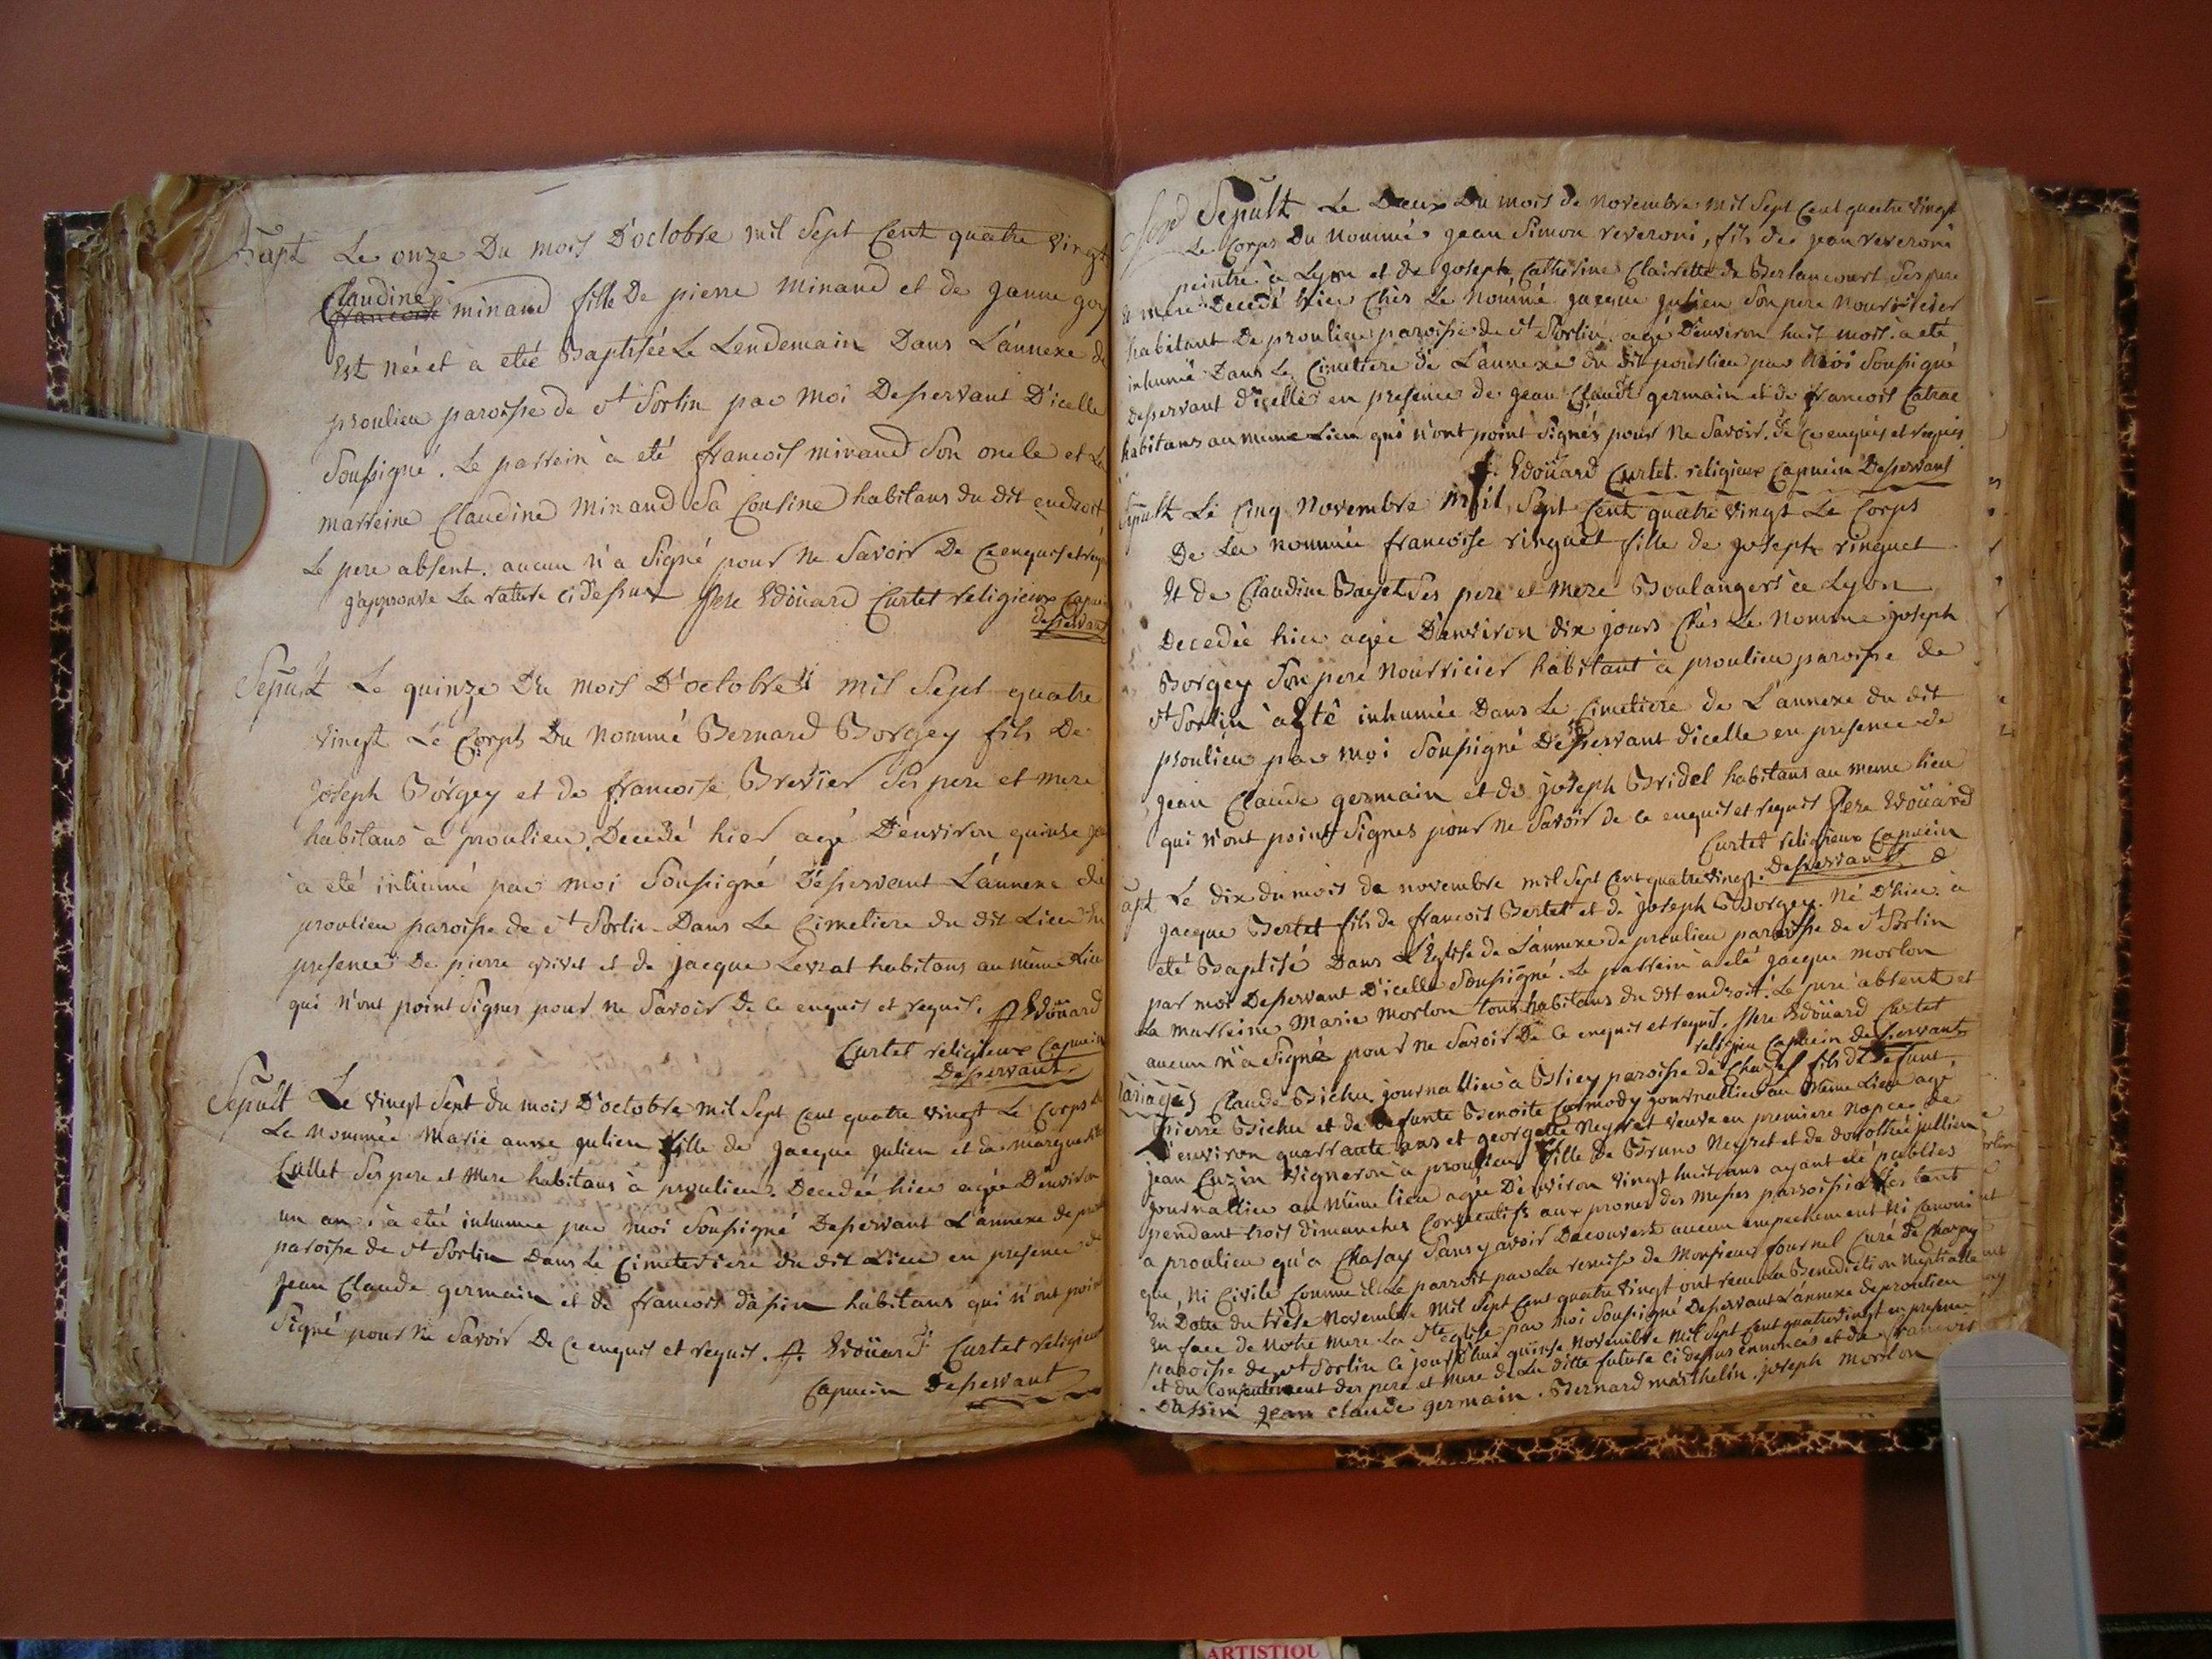 Bapt Le onze Du mois D'octobre mil Sept Cent quatre vingt
Claudine
francoise minand fille De pierre Minand et de janne goy
Est née et à eté Baptisée Le Lendemain Dans L'annexe de
proulieu paroisse de st Sorlin par moi Desservant D'icelle
Soussigné. Le parrein à eté francois minand Son oncle et La
marreine Claudine Minand Sa Cousine habitans du dit endroit,
Le pere absent. aucun n'a Signé pour ne Savoir De Ce enquis et requ
j'approuve La rature ci dessus frere Edoüard Curtet religieux Capu
desservant
Sepult Le quinze Du mois D'octobre mil Sept quatre
vingt Le Corps Du Nommé Bernard Borgey fils De
Joseph Borgey et de francoise Brevier Ses pere et mere
habitans à proulieu. Decedé hier agé D'environ quinse jo
à eté inhumé par moi Soussigné Desservant L'annexe de
proulieu paroisse de st Sorlin Dans Le Cimetiere du dit Lieu En
presence De pierre grivet et de jacque Levrat habitans au même Lieu
qui n'ont point Signes pour ne Savoir de Ce enquis et requis. fr Edoüard
Curtet religieux Capucin
Desservant
Sepult Le vingt Sept du mois D'octobre mil Sept Cent quatre vingt Le Corps de
La Nommée Marie anne julien fille de jacque julien et de marguerite
Callet Ses pere et Mere habitans à proulieu. Decedée hier agée D'environ
un an. à eté inhumée par moi Soussigné Desservant L'annexe de proul
paroisse de st Sorlin Dans Le Cimetiere du dit Lieu en presence de
Jean Claude germain et de francois dassin habitans qui n'ont point
Signé pour ne Savoir De Ce enquis et requis. fr. Edoüard Curtet religieux
Capucin Desservant
Sepult Le Deux Du mois de Novembre mil Sept Cent quatre vingt
Le Corps Du Nommé jean Simon reveroni, fils de jean reveroni
peintre à Lyon et de Joseph Catherine Clairette de Berlancourt Ses pere
et mere Decedé hier Chès Le Nommé jacque julien Son pere Nourricier
habitant De proulieu paroisse de st Sorlin. agé D'environ huit mois. à eté
inhumé Dans Le Cimetiere de L'annexe du dit proulieu par Moi Soussigné
Desservant D'icelle en presence de jean Claude germain et de francois Catrat
habitans au meme Lieu qui n'ont point Signés pour Ne Savoir. De Ce enquis et requis
f. Edoüard Curtet religieux Capucin Desservant
Sepult Le Cinq Novembre Mil Sept Cent quatre vingt Le Corps
De La nommée francoise ringuet fille de joseph ringuet
Et de Claudine Baget Ses pere et Mere Boulangers à Lyon
Decedée hier agée D'environ dix jours Chès Le Nommé joseph
Borgey Son pere Nourricier habitant à proulieu paroisse de
st Sorlin à Eté inhumée Dans Le Cimetiere de L'annexe du dit
proulieu par moi Soussigné Desservant d'icelle en presence de
jean Claude germain et de joseph Bridel habitans au meme lieu
qui n'ont point Signes pour Ne Savoir de Ce enquis et requis frere Edoüard
Curtet religieux Capucin
Desservant
apt Le dix du mois de novembre mil Sept Cent quatre vingt.
jacque Bertet fils de francois Bertet et de joseph Borgey. Né D'hier à
eté Baptisé Dans L'Eglise de L'annexe de proulieu paroisse de st Sorlin
par moi Desservant D'icelle Soussigné. Le parrein à eté jacque morlon
La marreine Marie Morlon tous habitans du dit endroit. Le pere absent et
aucun n'a Signé pour ne Savoir De Ce enquis et requis. frere Edoüard Curtet
religieu Capucin desservant
ariages Claude Bichu journallier à Bliey paroisse de Chazel fils de Defunt
pierre Bichu et de defunte Benoite Carmody journallier au Même Lieu agé
D'environ quarrante ans et georgette Neyret veuve en premiere Nopces de
jean Cuzin vigneron à proulieu fille de Bruno Neyret et de dorothée jullien
journallier au Même lieu agée D'environ vingt huit ans ayant eté publiés
pendant trois dimanches Consecutifs aux prones des Messes parroissialles tant
à proulieu qu'à Chasay Sans y avoir Decouvert aucun empechement Ni Canoni
que, Ni Civile Comme il Le parroit par La remise de Monsieur fournel Curé de Chazey
En Datte du trèse Novembre Mil Sept Cent quatre vingt ont recu La Benediction Nuptialle
En face de Notre Mere La Ste eglise par Moi Soussigné Desservant L'annexe de proulieu
paroisse de st Sorlin Ce jourd'hui quinse Novembre Mil Sept Cent quatre vingt en presence
et du Consentement des pere et Mere de La ditte future Ci dessus ennoncés et de francois
Dassin jean Claude germain. Bernard marthelin. joseph morlon
ARTISTIQU